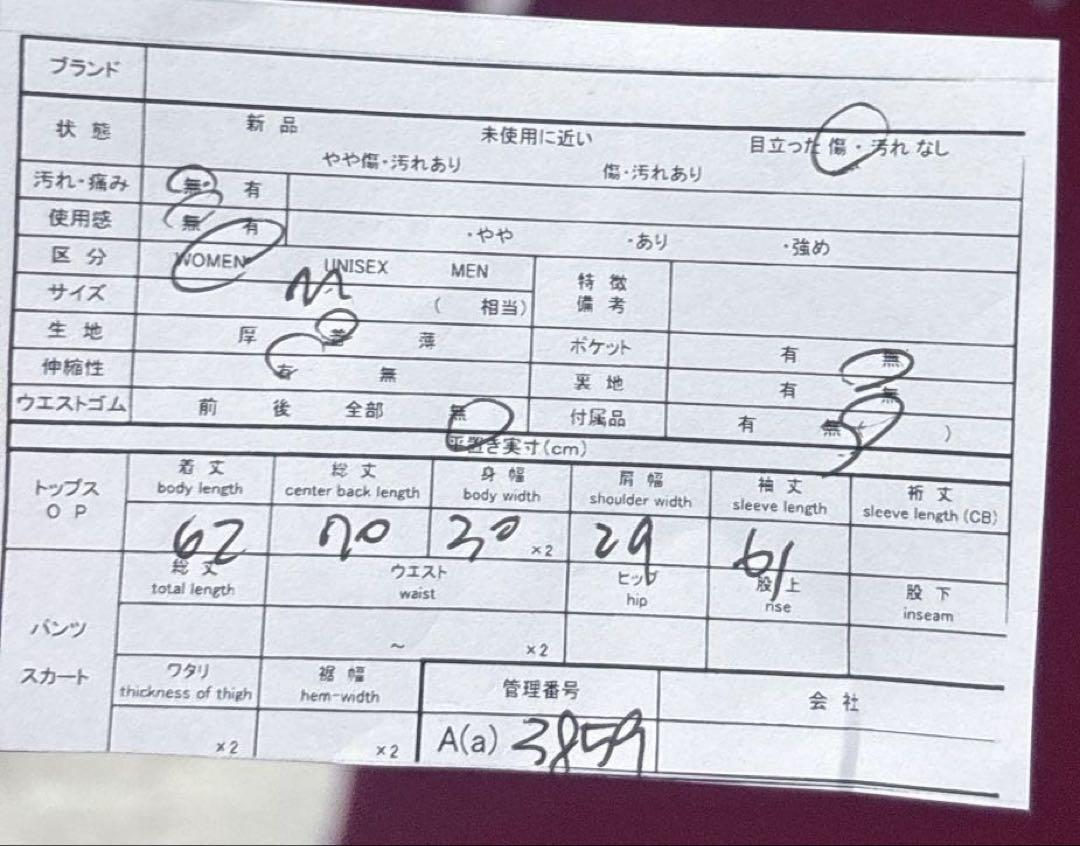 ブランド
状態 新品 未使用に近い 目立った傷・汚れなし
やや傷・汚れあり 傷・汚れあり
汚れ・痛み 無 有
使用感 無 有 ・やや ・あり ・強め
区分 WOMEN UNISEX MEN 特徴
備考
サイズ M ( 相当)
生地 厚 普 薄 ポケット 有 無
伸縮性 有 無 裏地 有 無
ウエストゴム 前 後 全部 無 付属品 有 無 ( )
平置き実寸(cm)
トップス
OP
着丈 総丈 身幅 肩幅 袖丈 裄丈
body length center back length body width shoulder width sleeve length sleeve length (CB)
62 70 30 ×2 29 61
パンツ
スカート
総丈 ウエスト ヒップ 股上 股下
total length waist hip rise inseam
~ ×2
ワタリ 裾幅 管理番号 会社
thickness of thigh hem-width
×2 ×2 A(a) 3859